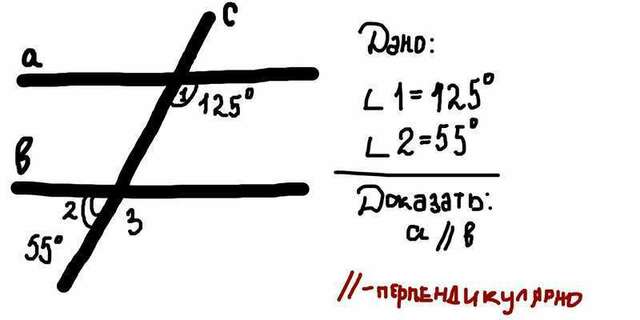 c
a
1 125°
в
2 3
55°
Дано:
∠ 1 = 125°
∠ 2 = 55°
Доказать:
a // в
// - перпендикулярно